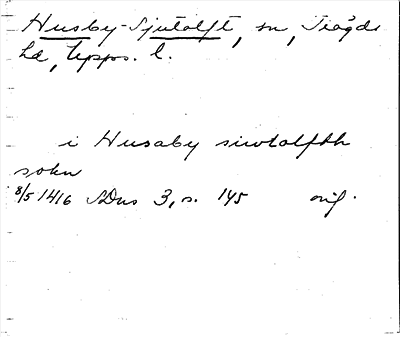 Husby-Sjutolft, sn, Trögds
hd, Upps. l.
i Husaby siwtolffth
sokn
8/5 1416 SDns 3, s. 145 orig.